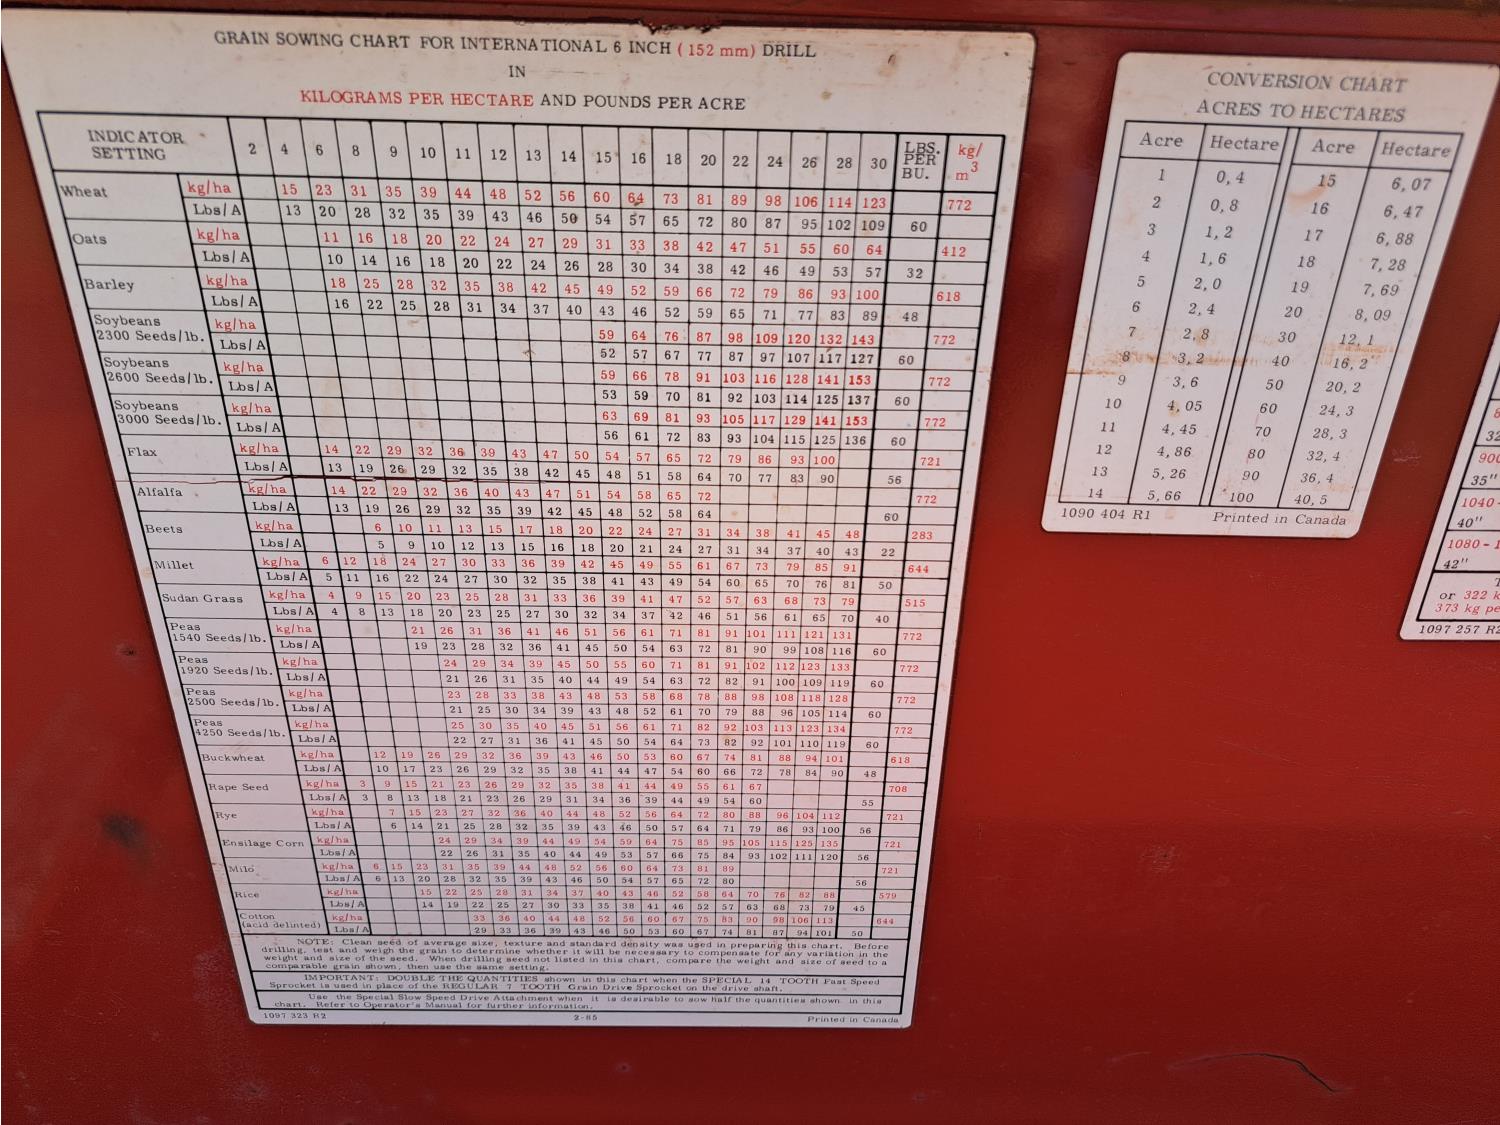 GRAIN SOWING CHART FOR INTERNATIONAL 6 INCH (152 mm) DRILL
IN
KILOGRAMS PER HECTARE AND POUNDS PER ACRE
INDICATOR SETTING 2 4 6 8 9 10 11 12 13 14 15 16 18 20 22 24 26 28 30 LBS. PER BU. kg/m³
Wheat kg/ha 15 23 31 35 39 44 48 52 56 60 64 73 81 89 98 106 114 123 772
Lbs/A 13 20 28 32 35 39 43 46 50 54 57 65 72 80 87 95 102 109 60
Oats kg/ha 11 16 18 20 22 24 27 29 31 33 38 42 47 51 55 60 64 412
Lbs/A 10 14 16 18 20 22 24 26 28 30 34 38 42 46 49 53 57 32
Barley kg/ha 18 25 28 32 35 38 42 45 49 52 59 66 72 79 86 93 100 618
Lbs/A 16 22 25 28 31 34 37 40 43 46 52 59 65 71 77 83 89 48
Soybeans 2300 Seeds/lb. kg/ha 59 64 76 87 98 109 120 132 143 772
Lbs/A 52 57 67 77 87 97 107 117 127 60
Soybeans 2600 Seeds/lb. kg/ha 59 66 78 91 103 116 128 141 153 772
Lbs/A 53 59 70 81 92 103 114 125 137 60
Soybeans 3000 Seeds/lb. kg/ha 63 69 81 93 105 117 129 141 153 772
Lbs/A 56 61 72 83 93 104 115 125 136 60
Flax kg/ha 14 22 29 32 36 39 43 47 50 54 57 65 72 79 86 93 100 721
Lbs/A 13 19 26 29 32 35 38 42 45 48 51 58 64 70 77 83 90 56
Alfalfa kg/ha 14 22 29 32 36 40 43 47 51 54 58 65 72 772
Lbs/A 13 19 26 29 32 35 39 42 45 48 52 58 64 60
Beets kg/ha 6 10 11 13 15 17 18 20 22 24 27 31 34 38 41 45 48 283
Lbs/A 5 9 10 12 13 15 16 18 20 21 24 27 31 34 37 40 43 22
Millet kg/ha 6 12 18 24 27 30 33 36 39 42 45 49 55 61 67 73 79 85 91 644
Lbs/A 5 11 16 22 24 27 30 32 35 38 41 43 49 54 60 65 70 76 81 50
Sudan Grass kg/ha 4 9 15 20 23 25 28 31 33 36 39 41 47 52 57 63 68 73 79 515
Lbs/A 4 8 13 18 20 23 25 27 30 32 34 37 42 46 51 56 61 65 70 40
Peas 1540 Seeds/lb. kg/ha 21 26 31 36 41 46 51 56 61 71 81 91 101 111 121 131 772
Lbs/A 19 23 28 32 36 41 45 50 54 63 72 81 90 99 108 116 60
Peas 1920 Seeds/lb. kg/ha 24 29 34 39 45 50 55 60 71 81 91 102 112 123 133 772
Lbs/A 21 26 31 35 40 44 49 54 63 72 82 91 100 109 119 60
Peas 2500 Seeds/lb. kg/ha 23 28 33 38 43 48 53 58 68 78 88 98 108 118 128 772
Lbs/A 21 25 30 34 39 43 48 52 61 70 79 88 96 105 114 60
Peas 4250 Seeds/lb. kg/ha 25 30 35 40 45 51 56 61 71 82 92 103 113 123 134 772
Lbs/A 22 27 31 36 41 45 50 54 64 73 82 92 101 110 119 60
Buckwheat kg/ha 12 19 26 29 32 36 39 43 46 50 53 60 67 74 81 88 94 101 618
Lbs/A 10 17 23 26 29 32 35 38 41 44 47 54 60 66 72 78 84 90 48
Rape Seed kg/ha 3 9 15 21 23 26 29 32 35 38 41 44 49 55 61 67 708
Lbs/A 3 8 13 18 21 23 26 29 31 34 36 39 44 49 54 60 55
Rye kg/ha 7 15 23 27 32 36 40 44 48 52 56 64 72 80 88 96 104 112 721
Lbs/A 6 14 21 25 28 32 35 39 43 46 50 57 64 71 79 86 93 100 56
Ensilage Corn kg/ha 24 29 34 39 44 49 54 59 64 75 85 95 105 115 125 135 721
Lbs/A 22 26 31 35 40 44 49 53 57 66 75 84 93 102 111 120 56
Milo kg/ha 6 15 23 31 35 39 44 48 52 56 60 64 73 81 89 721
Lbs/A 6 13 20 28 32 35 39 43 46 50 54 57 65 72 80 56
Rice kg/ha 15 22 25 28 31 34 37 40 43 46 52 58 64 70 76 82 88 579
Lbs/A 14 19 22 25 27 30 33 35 38 41 46 52 57 63 68 73 79 45
Cotton (acid delinted) kg/ha 33 36 40 44 48 52 56 60 67 75 83 90 98 106 113 644
Lbs/A 29 33 36 39 43 46 50 53 60 67 74 81 87 94 101 50
NOTE: Clean seed of average size, texture and standard density was used in preparing this chart. Before
drilling, test and weigh the grain to determine whether it will be necessary to compensate for any variation in the
weight and size of the seed. When drilling seed not listed in this chart, compare the weight and size of seed to a
comparable grain shown, then use the same setting.
IMPORTANT: DOUBLE THE QUANTITIES shown in this chart when the SPECIAL 14 TOOTH Fast Speed
Sprocket is used in place of the REGULAR 7 TOOTH Grain Drive Sprocket on the drive shaft.
Use the Special Slow Speed Drive Attachment when it is desirable to sow half the quantities shown in this
chart. Refer to Operator's Manual for further information.
1097 323 R2 2-85 Printed in Canada
CONVERSION CHART
ACRES TO HECTARES
Acre Hectare Acre Hectare
1 0,4 15 6,07
2 0,8 16 6,47
3 1,2 17 6,88
4 1,6 18 7,28
5 2,0 19 7,69
6 2,4 20 8,09
7 2,8 30 12,1
8 3,2 40 16,2
9 3,6 50 20,2
10 4,05 60 24,3
11 4,45 70 28,3
12 4,86 80 32,4
13 5,26 90 36,4
14 5,66 100 40,5
1090 404 R1 Printed in Canada
35"
1040-
40"
1080-1
42"
or 322 k
373 kg pe
1097 257 R2